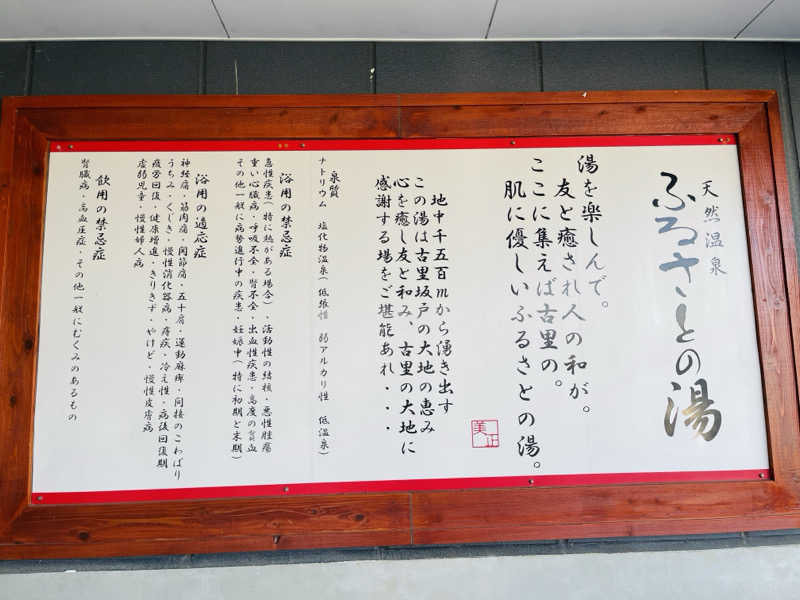 天然温泉
ふるさとの湯
湯を楽しんで。
友と癒され人の和が。
ここに集えば古里の。
肌に優しいふるさとの湯。
地中千五百mから湧き出す
この湯は古里坂戸の大地の恵み
心を癒し友と和み、古里の大地に
感謝する場をご堪能あれ・・・
泉質
ナトリウム 塩化物温泉(低張性 弱アルカリ性 低温泉)
浴用の禁忌症
急性疾患(特に熱がある場合)、活動性の結核・悪性腫瘍
重い心臓病・呼吸不全・腎不全・出血性疾患・高度の貧血
その他一般に病勢進行中の疾患・妊娠中(特に初期と末期)
浴用の適応症
神経痛・筋肉痛・関節痛・五十肩・運動麻痺・間接のこわばり
うちみ・くじき・慢性消化器病・痔疾・冷え性・病後回復期
疲労回復・健康増進・きりきず・やけど・慢性皮膚病
虚弱児童・慢性婦人病
飲用の禁忌症
腎臓病・高血圧症・その他一般にむくみのあるもの